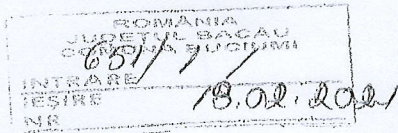 ROMÂNIA
JUDEŢUL BACĂU
COMUNA BUCIUMI
651/1/
INTRARE
IEŞIRE 18.02.2021
NR